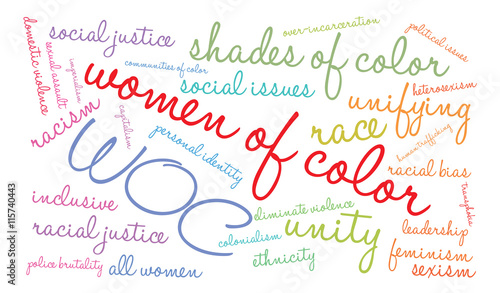 over-incarceration
social justice
shades of color
political issues
domestic violence
sexual assault
imperialism
communities of color
social issues
heterosexism
women of color
unifying
racism
capitalism
race
personal identity
human trafficking
WOC
racial bias
transphobia
inclusive
eliminate violence
unity
leadership
racial justice
colonialism
feminism
ethnicity
police brutality
all women
sexism
Adobe Stock | #115740443